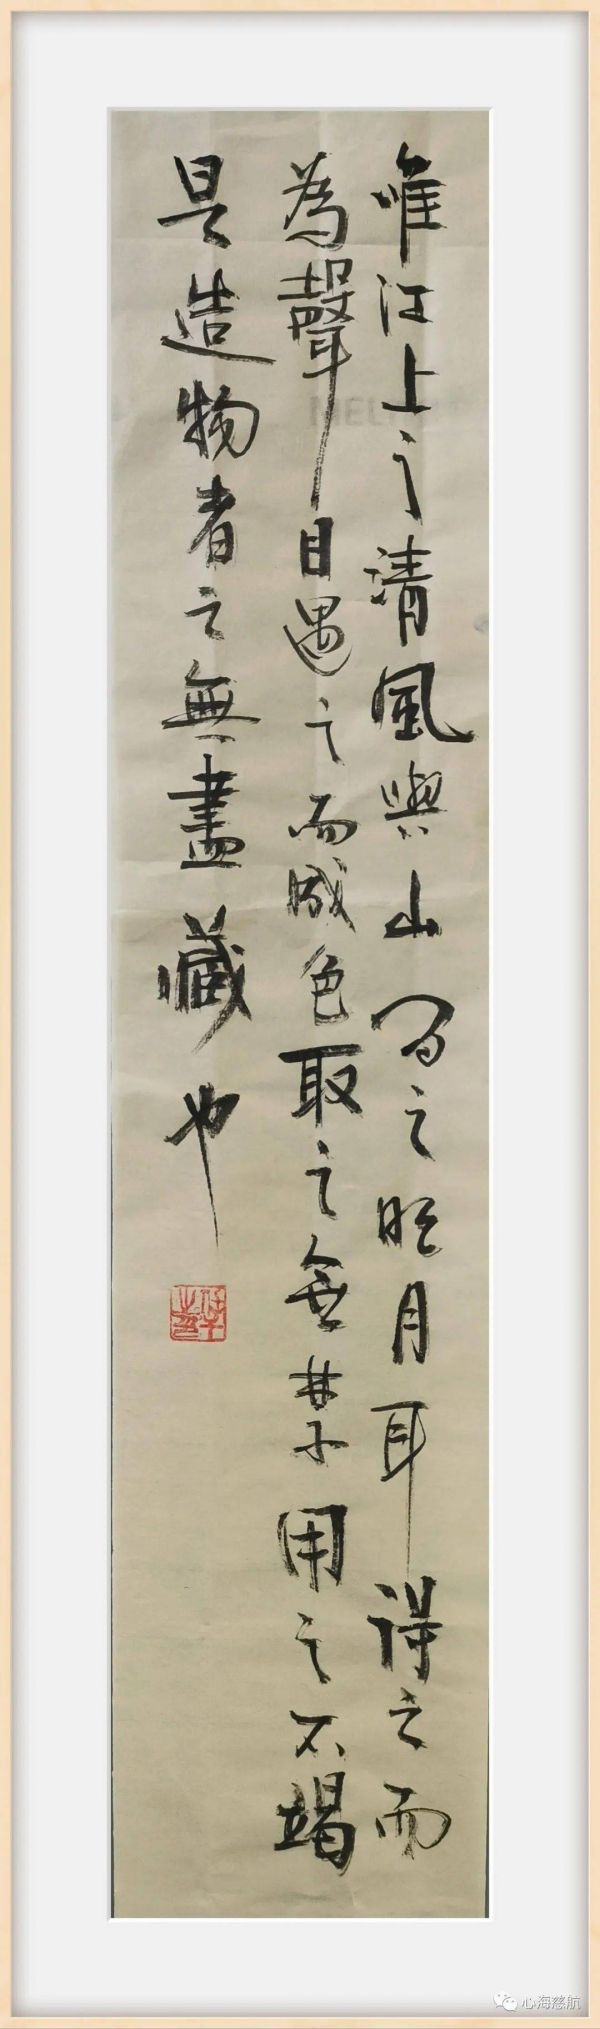 唯江上之清風與山間之明月耳得之而
為聲目遇之而成色取之無禁用之不竭
是造物者之無盡藏也
心海慈航